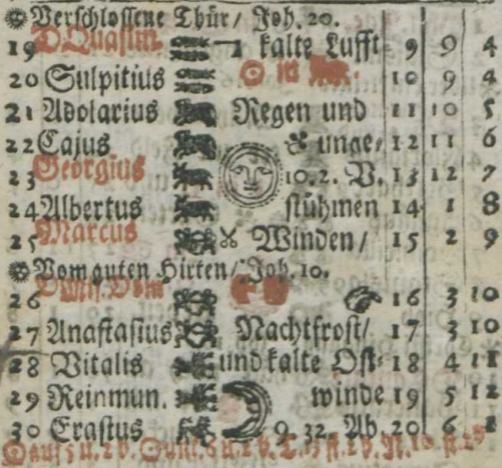 Verschlossene Thür/ Joh. 20.
19 D Quasim. kalte Lufft 9 9 4
20 Sulpitius 10 9 4
21 Adolarius Regen und 11 10 5
22 Cajus unge- 12 11 6
23 Georgius 10. 2. V. 13 12 7
24 Albertus stühmen 14 1 8
25 Marcus Winden/ 15 2 9
Vom guten Hirten/ Joh. 10.
26 16 3 10
27 Anastasius Nachtfrost/ 17 3 10
28 Vitalis und kalte Ost- 18 4 11
29 Reinmun. winde 19 5 12
30 Erastus 9. 32. Ab. 20 6 1